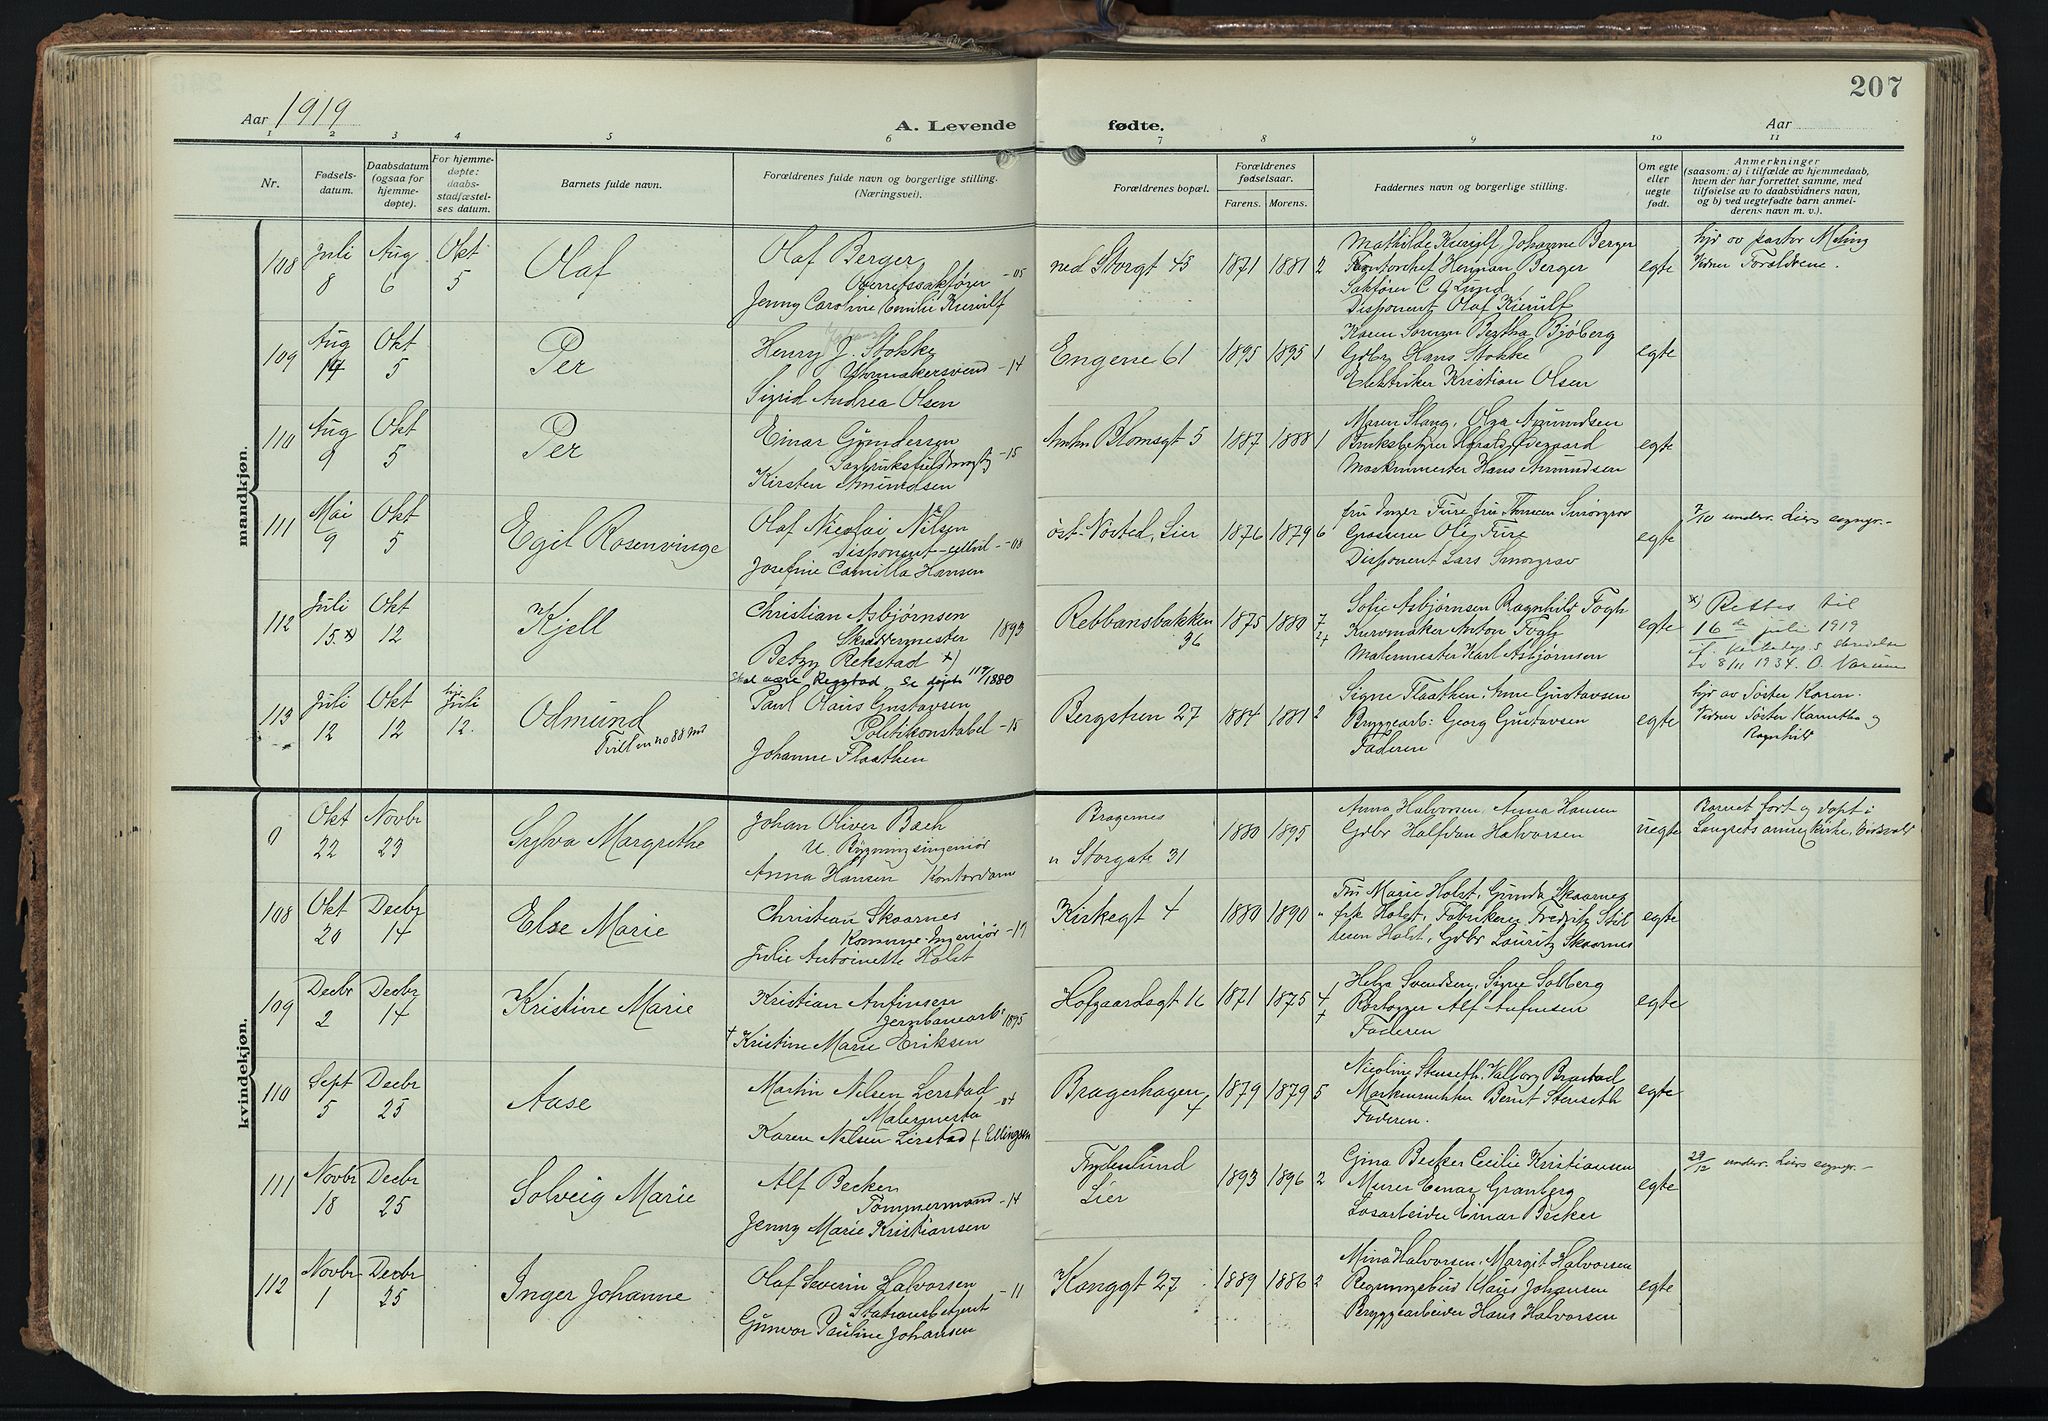 207
Aar 1919
A. Levende fødte.
Aar
1 2 3 4 5 6 7 8 9 10 11
Nr.
Fødsels-
datum.
Daabsdatum
(ogsaa for
hjemme-
døpte).
For hjemme-
døpte:
daabs-
stadfæstel-
ses datum.
Barnets fulde navn.
Forældrenes fulde navn og borgerlige stilling.
(Næringsvei).
Forældrenes bopæl.
Forældrenes
fødselsaar.
Farens. Morens.
Faddernes navn og borgerlige stilling.
Om egte
eller
uegte
født.
Anmerkninger
(saasom: a) i tilfælde av hjemmedaab,
hvem der har forrettet samme, med
tilføielse av to daabsvidners navn,
og b) ved uegtefødte barn anmel-
derens navn m. v.).
mandkjøn.
108 Juli 8 Aug 6 Okt 5 Olaf
Olaf Berger
Overretssakfører -05
Jenny Caroline Emilie Kierulf
ned Storgt 45 1871 1881 2
Mathilde Kierulf, Johanne Berger
Kontorchef Herman Berger
Sakfører C A Lund
Disponent Olaf Kierulf
egte
hjd av pastor Meling
Vidner Forældrene.
109 Aug 14 Okt 5 Per
Henry J. Stokke
Uhrmakersvend -14
Sigrid Andrea Olsen
Engene 61 1895 1895 1
Karen Bertha Bjøberg
Gdbr Hans Stokke
Elektriker Kristian Olsen
egte
110 Aug 9 Okt 5 Per
Einar Gundersen
-15
Kirsten Amundsen
Amtm Blomsgt 5 1887 1888 1
Maren Stang, Olga Amundsen
Bruksbetyrer Harald Ødegaard
Maskinmester Hans Amundsen
egte
111 Mai 9 Okt 5 Egil Rosenvinge
Olaf Nicolai Nilsen
Disponent -08
Josefine Camilla Hansen
øst. Nøsted, Lier 1876 1879 6
fru Inger Ture fru Smørgrav
Grosserer Ole Ture
Disponent Lars Smørgrav
egte
7/10 underr. Liers sogнepr.-
112 Juli 15 x) Okt 12 Kjell
Christian Asbjørnsen
Skræddermester 1893
Betzy Rekstad x)
Skal være Regstad se døpte 119/1880
Rebbansbakken
96 1875 1880 7
2+
Sofie Asbjørnsen Ragnhild Fogh
Kurvmaker Anton Fogh
Malermester Karl Asbjørnsen
egte
x) Rettes til
16de juli 1919
f. Kirkedep.s skrivelse
av 8/11 1934. O.
113 Juli 12 Okt 12 hjd Juli 12. Odmund
Tvill m no 88
Paul Olaus Gustavsen
Politikonstabel -15
Johanne Flaathen
Bergstien 27 1884 1881 2
Signe Flaathen, Anne Gustavsen
Bryggearb: Georg Gustavsen
Faderen
egte
hjd av Søster Karen.
Vidner Søster Kamitha og
Ragnhild
kvindekjøn.
9 Okt 22 Novbr 23 Sylva Margrethe
Johan Oliver Bach
U. Bygningsingeniør
Anna Hansen Kontordame
Bragernes
n Storgate 31 1880 1895
Anna Halvorsen, Anna Hansen
Gdbr Halfdan Halvorsen
uegte
Barnet født og døpt i
Langsets annexkirke, Eidsvold
108 Okt 20 Decbr 14 Else Marie
Christian Skaarnes
Kommune-Ingeniør -19
Julie Antoinette Holst
Kirkegt 4 1880 1890 "
Fru Marie Holst, Gunda Skaarnes
frk Holst, Fabrikeier Fredrik Stil-
lesen Holst, Gdbr Lauritz Skaarnes
egte
109 Decbr 2 Decbr 14 Kristine Marie
Kristian Anfinsen
Jernbanearb. 1895
+ Kristine Marie Eriksen
Hofgaardsgt 16 1871 1875 4
+
Helga Svendsen, Signe Solberg
Rørlægger Alf Anfinsen
Faderen
egte
110 Sept 5 Decbr 25 Aase
Martin Nilsen Lerstad
Malermester -04
Karen Nilsen Lerstad f. Ellingsen
Bragerhagen
4 1879 1879 5
Nicoline Stenseth, Valborg Brastad
Bernt Stenseth
Faderen.
egte
111 Novbr 18 Decbr 25 Solveig Marie
Alf Becker
Tømmermand -14
Jenny Marie Kristiansen
Frydenlund
Lier 1893 1896 2
Gina Becker Cecilie Kristiansen
Murer Einar Granberg
Løsarbeider Einar Becker
egte
29/12 underr. Liers sognepr.-
112 Novbr 1 Decbr 25 Inger Johanne
Olaf Severin Halvorsen
Stationsbetjent -11
Gunvor Pauline Johansen
Konggt 27 1889 1886 2
Mina Halvorsen, Margit Halvorsen
Regningsbud Klaus Johansen
Bryggearbeider Hans Halvorsen
egte